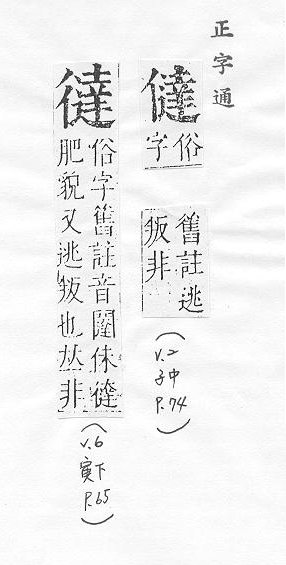 正字通
㒓
俗
字
舊註逃
叛非
(V.2
子中
P.74)
㣵
俗字舊註音闥佅㣵
肥貌又逃叛也𠀤非
(V.6
寅下
P.65)